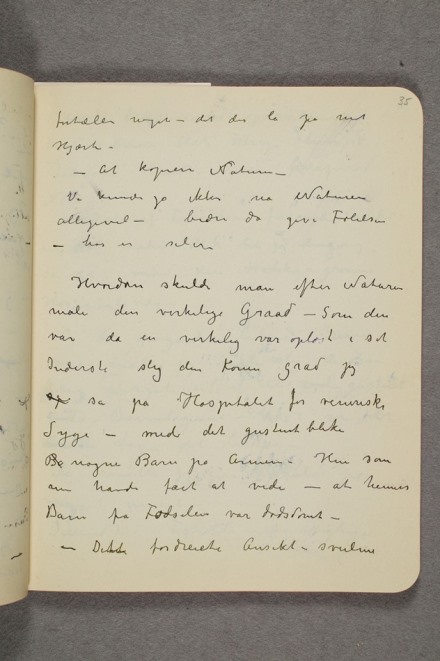 35
fortælle noget – det der lå på mit
Hjærte –
– At kopiere Naturen –
Vi kunde jo ikke nå Naturen
alligevel – bedre da give Følelsen
– hos en selv
Hvordan skulde man efter Naturen
male den virkelige Graad – Som den
var da en virkelig var opløst i sit
Inderste slig den Konen grad jeg
så på Hospitalet for veneriske
Syge – med det gustent bleke
nøgne Barn på Armen – Hun som
nu havde fået at vide – at hennes
Barn fra Fødselen var dødsdømt –
– Dette fordreiete Ansikt –